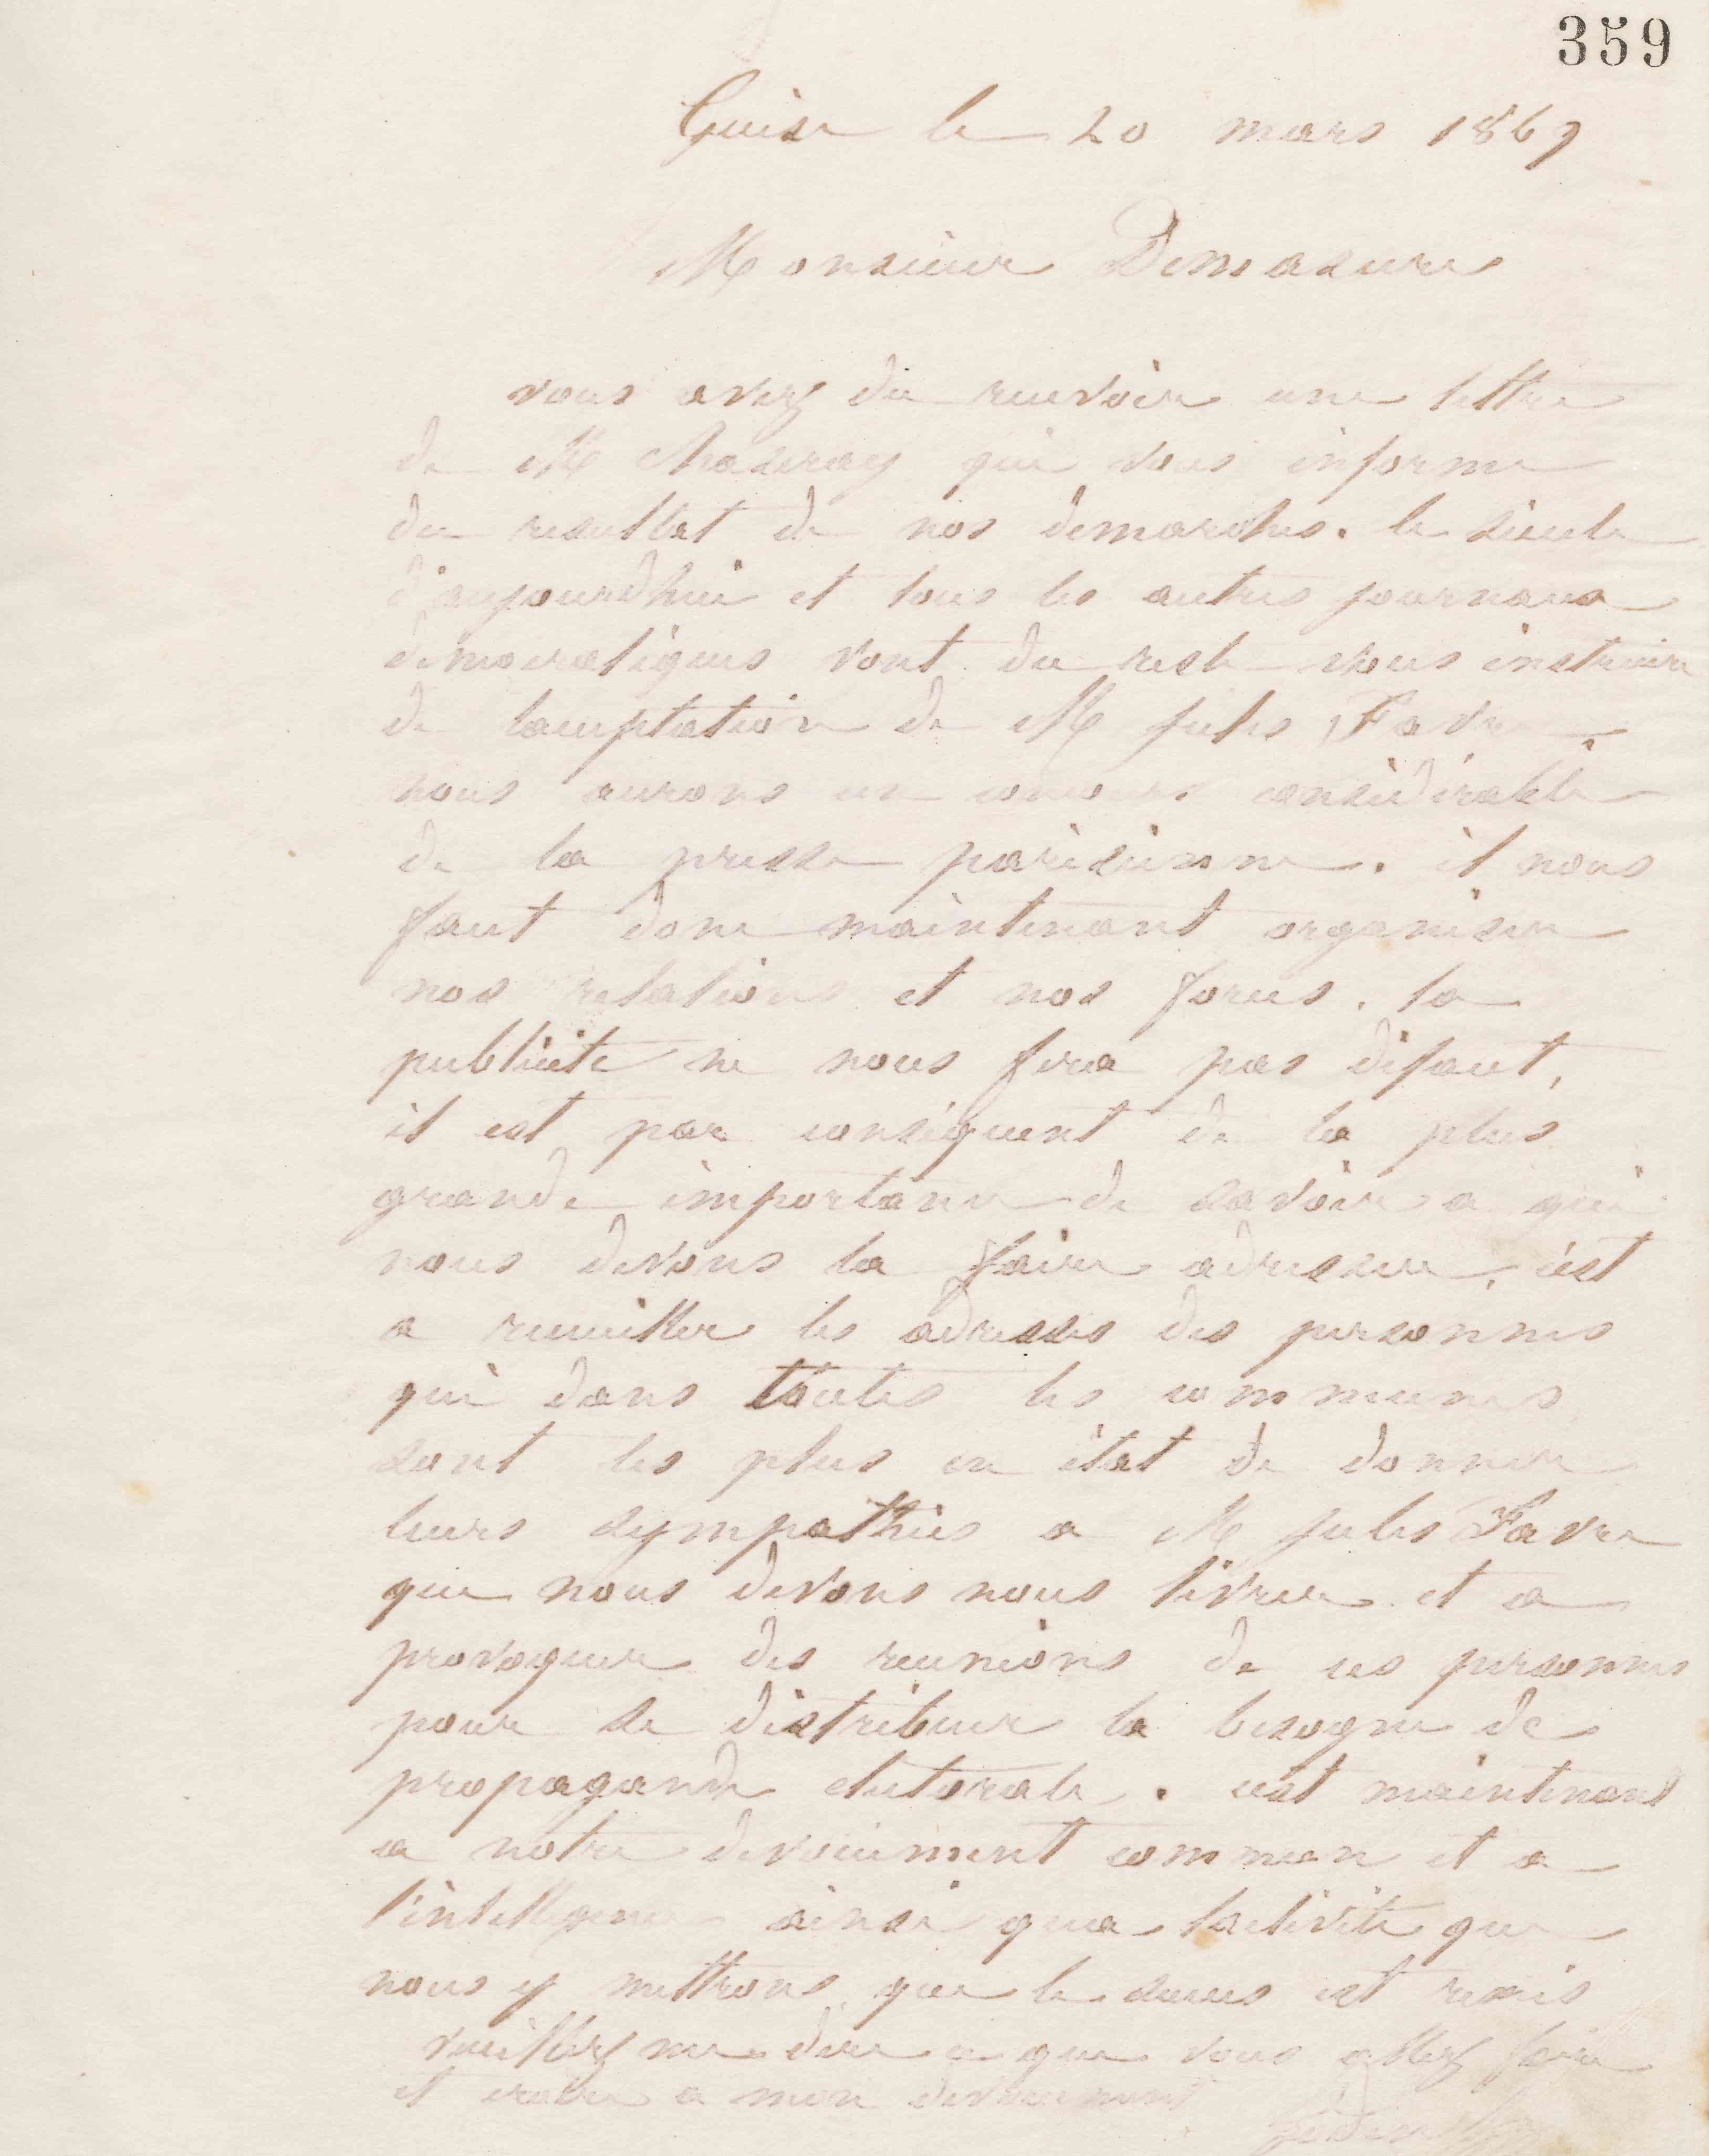 359
Guise le 20 mars 1869
Monsieur Demasure
vous avez du recevoir une lettre
de M qui vous informe
du resultat de nos demarches. le siecle
d'aujourdhui et tous les autres journaux
democratiques vont du reste vous instruire
de lacceptation de M Jules Favre
nous aurons un concours considérable
de la presse parisienne. il nous
faut donc maintenant organiser
nos relations et nos forces. la
publicité ne nous fera pas défaut,
il est par conséquent de la plus
grande importance de savoir a qui
nous devons la faire adresser, c'est
a recueiller les adresses des personnes
qui dans toutes les communes
sont les plus en état de donner
leurs sympathies a M Jules Favre
que nous devons nous livrer et a
provoquer des reunions de ces personnes
pour se distribuer la besogne de
propagande electorale. cest maintenant
a notre devouement commun et a
l'intelligence ainsi qua lactivité que
nous y mettrons que le succes est remis
veuillez me dire ce que vous allez faire
et croire a mon devouement
Godin